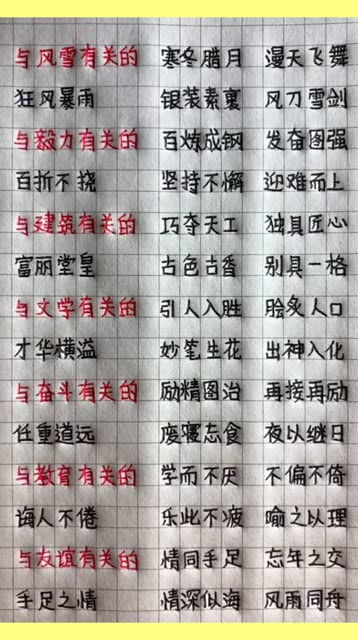 与风雪有关的 寒冬腊月 漫天飞舞
狂风暴雨 银装素裹 风刀雪剑
与毅力有关的 百炼成钢 发奋图强
百折不挠 坚持不懈 迎难而上
与建筑有关的 巧夺天工 独具匠心
富丽堂皇 古色古香 别具一格
与文学有关的 引人入胜 脍炙人口
才华横溢 妙笔生花 出神入化
与奋斗有关的 励精图治 再接再励
任重道远 废寝忘食 夜以继日
与教育有关的 学而不厌 不偏不倚
诲人不倦 乐此不疲 喻之以理
与友谊有关的 情同手足 忘年之交
手足之情 情深似海 风雨同舟